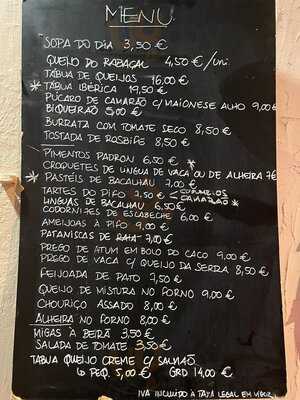 MENU
SOPA DO DIA 3,50 €
QUEIJO DO RABAÇAL 4,50 €/uni
TÁBUA DE QUEIJOS 16,00 €
* TÁBUA IBÉRICA 19,50 €
PÚCARO DE CAMARÃO C/MAIONESE ALHO 9,00 €
BIQUEIRÃO 5,00 €
BURRATA COM TOMATE SECO 8,50 €
TOSTADA DE ROSBIFE 8,50 €
PIMENTOS PADRON 6,50 € *
CROQUETES DE LÍNGUA DE VACA OU DE ALHEIRA 7€
* PASTÉIS DE BACALHAU 7,00 €
TARTES DO PIFO 7,50 €
CAMARÃO *
LÍNGUAS DE BACALHAU 6,50 €
CODORNIZES DE ESCABECHE 6,00 €
AMEIJOAS À PIFO 9,00 €
PATANISCAS DE 7,00 €
PREGO DE ATUM EM BOLO DO CACO 9,00 €
PREGO DE VACA C/ QUEIJO DA SERRA 8,50 €
FEIJOADA DE PATO 7,50 €
QUEIJO DE MISTURA NO FORNO 9,00 €
CHOURIÇO ASSADO 8,00 €
ALHEIRA NO FORNO 8,00 €
MIGAS À BEIRÃ 3,50 €
SALADA DE TOMATE 3,50 €
TÁBUA QUEIJO CREME C/ SALMÃO
PEQ. 5,00 € GRD 14,00 €
IVA INCLUÍDO À TAXA LEGAL EM VIGOR